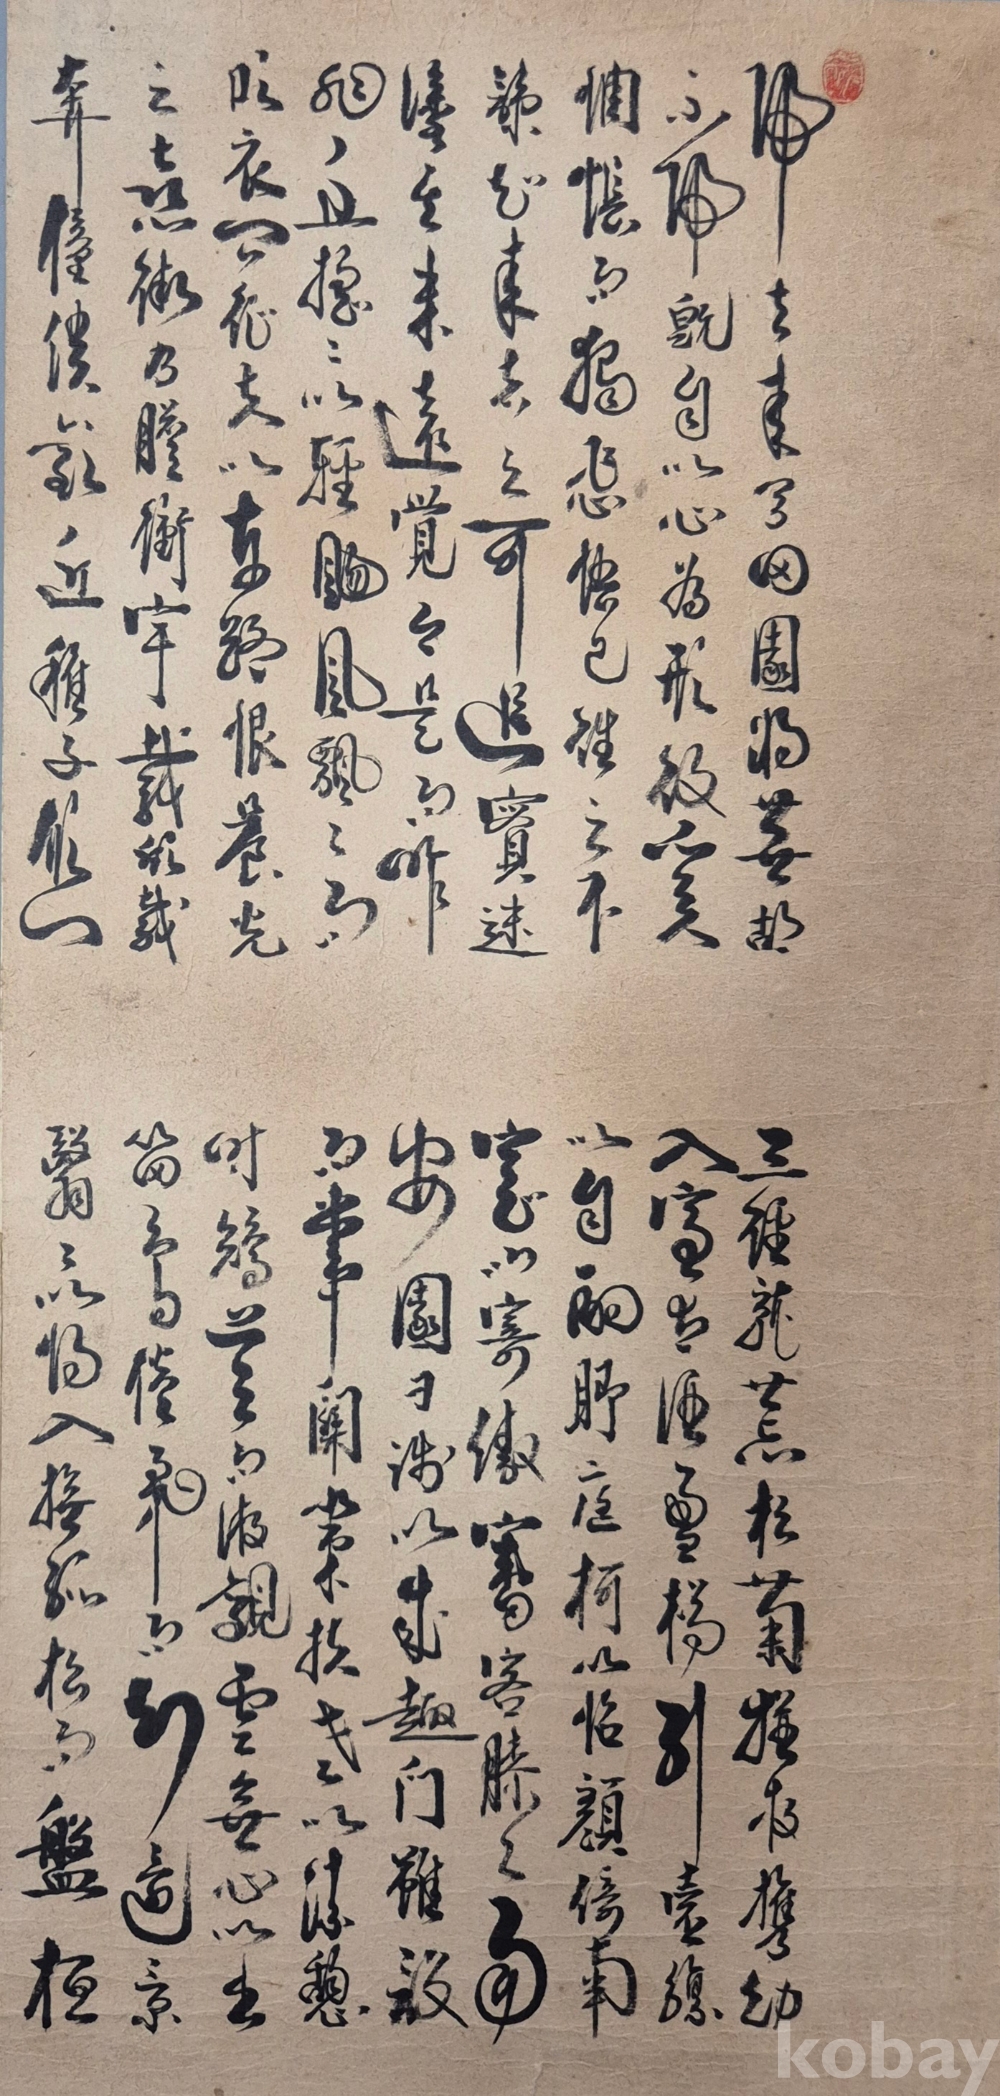 歸去來兮田園將蕪胡
不歸旣自以心爲形役奚
惆悵而獨悲悟已往之不
諫知來者之可追實迷
塗其未遠覺今是而昨
非舟搖〻以輕颺風飄〻而
吹衣問征夫以前路恨晨光
之熹微乃瞻衡宇載欣載
奔僮僕歡迎稚子候門
三徑就荒松菊猶存携幼
入室有酒盈樽引壺觴
以自酌眄庭柯以怡顔倚南
窓以寄傲審容膝之易
安園日涉以成趣門雖設
而常關策扶老以流憩
時矯首而遐觀雲無心以出
岫鳥倦飛而知還景
翳〻以將入撫孤松而盤桓
kobay